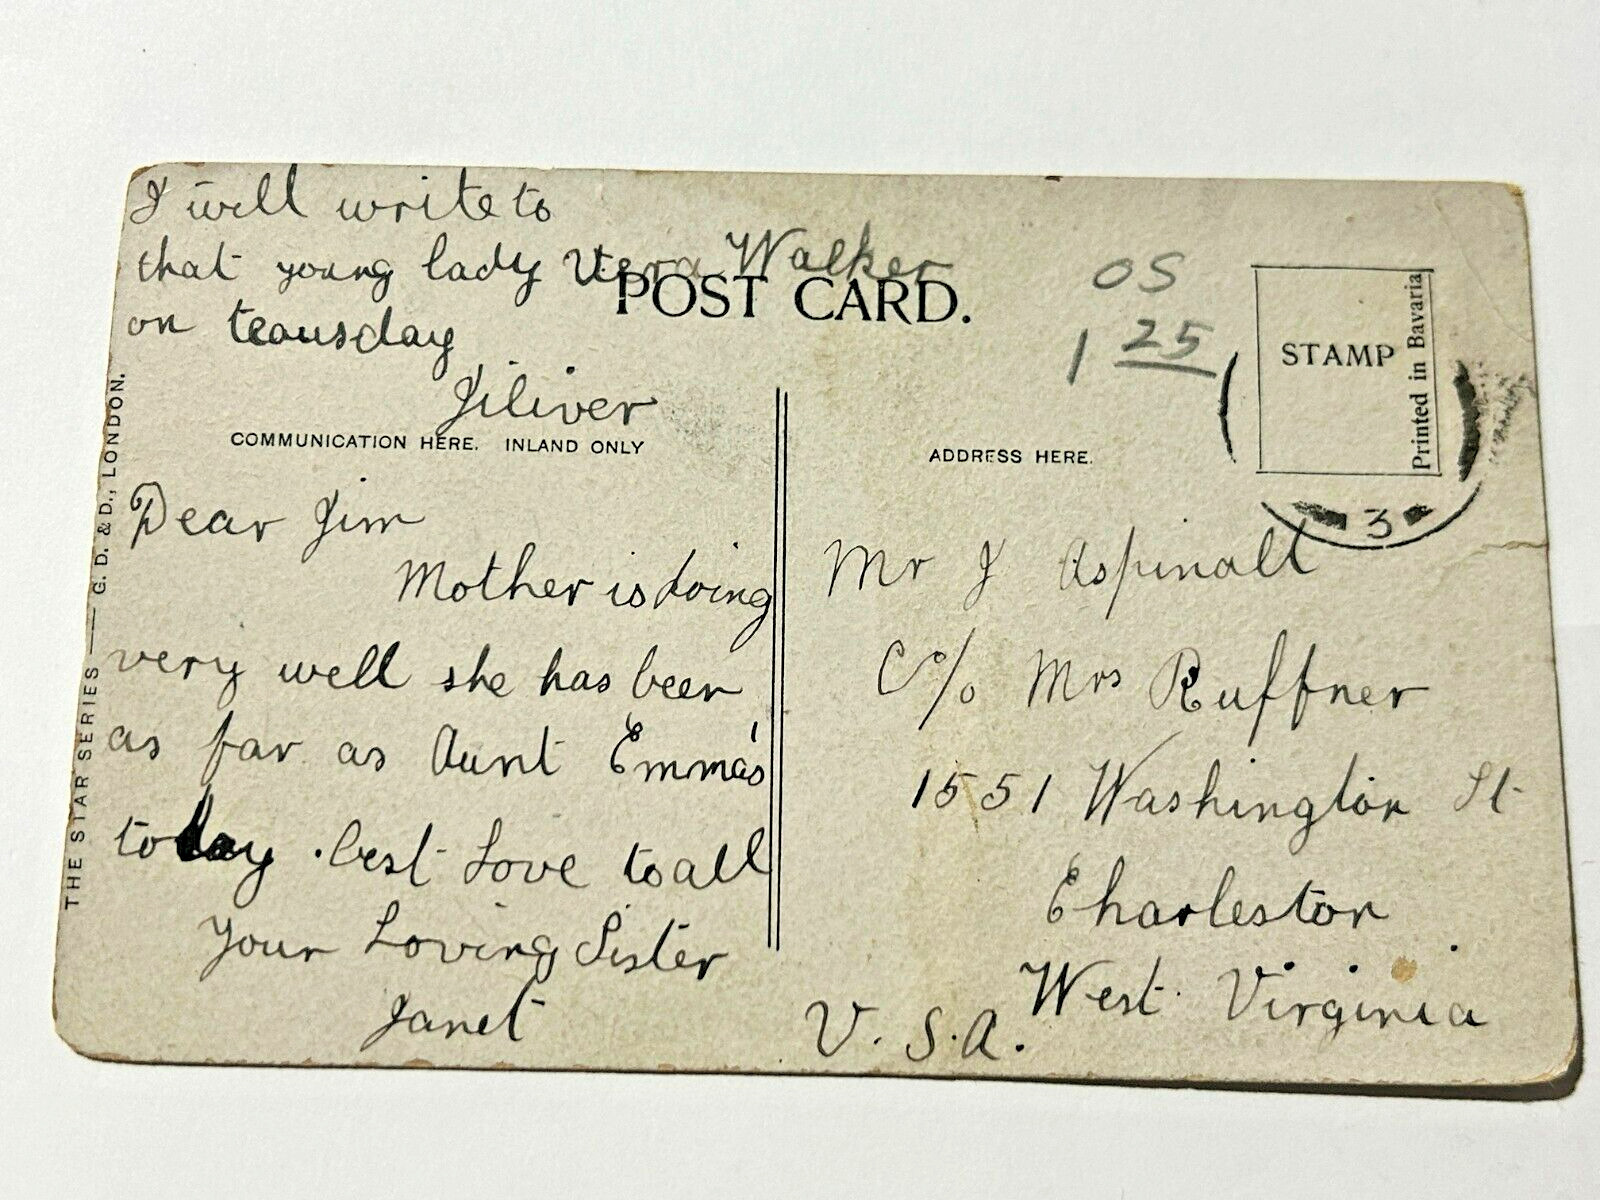 I will write to
that young lady Vera Walker
on teausday
Jiliver
POST CARD.
COMMUNICATION HERE. INLAND ONLY
Dear Jim
Mother is doing
very well she has been
as far as Aunt Emma's
today . best Love to all
Your Loving Sister
Janet
THE STAR SERIES — G. D. & D., LONDON.
OS
1 25
STAMP
Printed in Bavaria
3
ADDRESS HERE.
Mr J Aspinall
C/o Mrs Ruffner
1551 Washington St
Charleston
West Virginia
U.S.A.